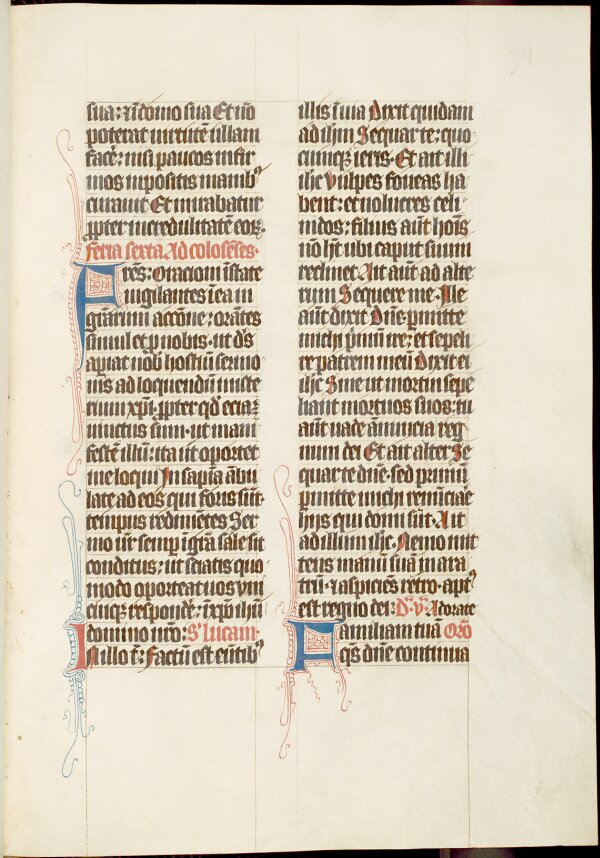 sua: ⁊ ī domo sua Et nō
poterat uirtutē ullam
facē: nisi paucos infir
mos inpositis manib⁹
curauit Et mirabatur
ꝓpter incredulitatē eoꝝ·
feria sexta Ad colosēses·
Fres: Oracioni īstate
uigilantes ī ea in
gr̄arum acc̄one: orātes
simul et ꝓ nobis· ut dꝰs
aꝑiat nob hostiū sermo
nis ad loquendū miste
rium xp̄i ꝓpter qd̄ eciā
uinctus sum· ut mani
festē illū: ita ut oportet
me loqui In sapīa ābu
late ad eos qui foris sūt·
tempus redimētes Ser
mo ur̄ semp̄ ī gr̄a sale sit
conditus: ut sciatis quo
modo oporteat uos uni
cuiqꝫ respondē· ī xp̄o ih̄u
domino nr̄o: S· lucam·
In illo t̄: Factū est eūtib⁹
illis ī uia Dixit quidam
ad ih̄m Sequar te: quo
cumqꝫ ieris· Et ait illi
ih̄c Vulpes foueas ha
bent: et uolucres celi
nidos: filius aut̄ hoīs
nō ht̄ ubi caput suum
reclinet Ait aut̄ ad alte
rum Sequere me· Ille
aut̄ dixit Dn̄e· ꝑmitte
michi pͥmū ire: et sepeli
re patrem meū Dixit ei
ih̄c Sine ut mortui sepe
liant mortuos suos: tu
aut̄ uade annūcia reg
num dei Et ait alter Se
quar te dn̄e· sed primū
ꝑmitte michi renūciaē
hijs qui domi sūt· Ait
ad illum ih̄c· Nemo mit
tens manū suā in ara
trū· ⁊ aspiciēs retro· apt⁹
est regno dei: D· v· Adorate
Familiam tuā Oro
qs̄ dn̄e continua